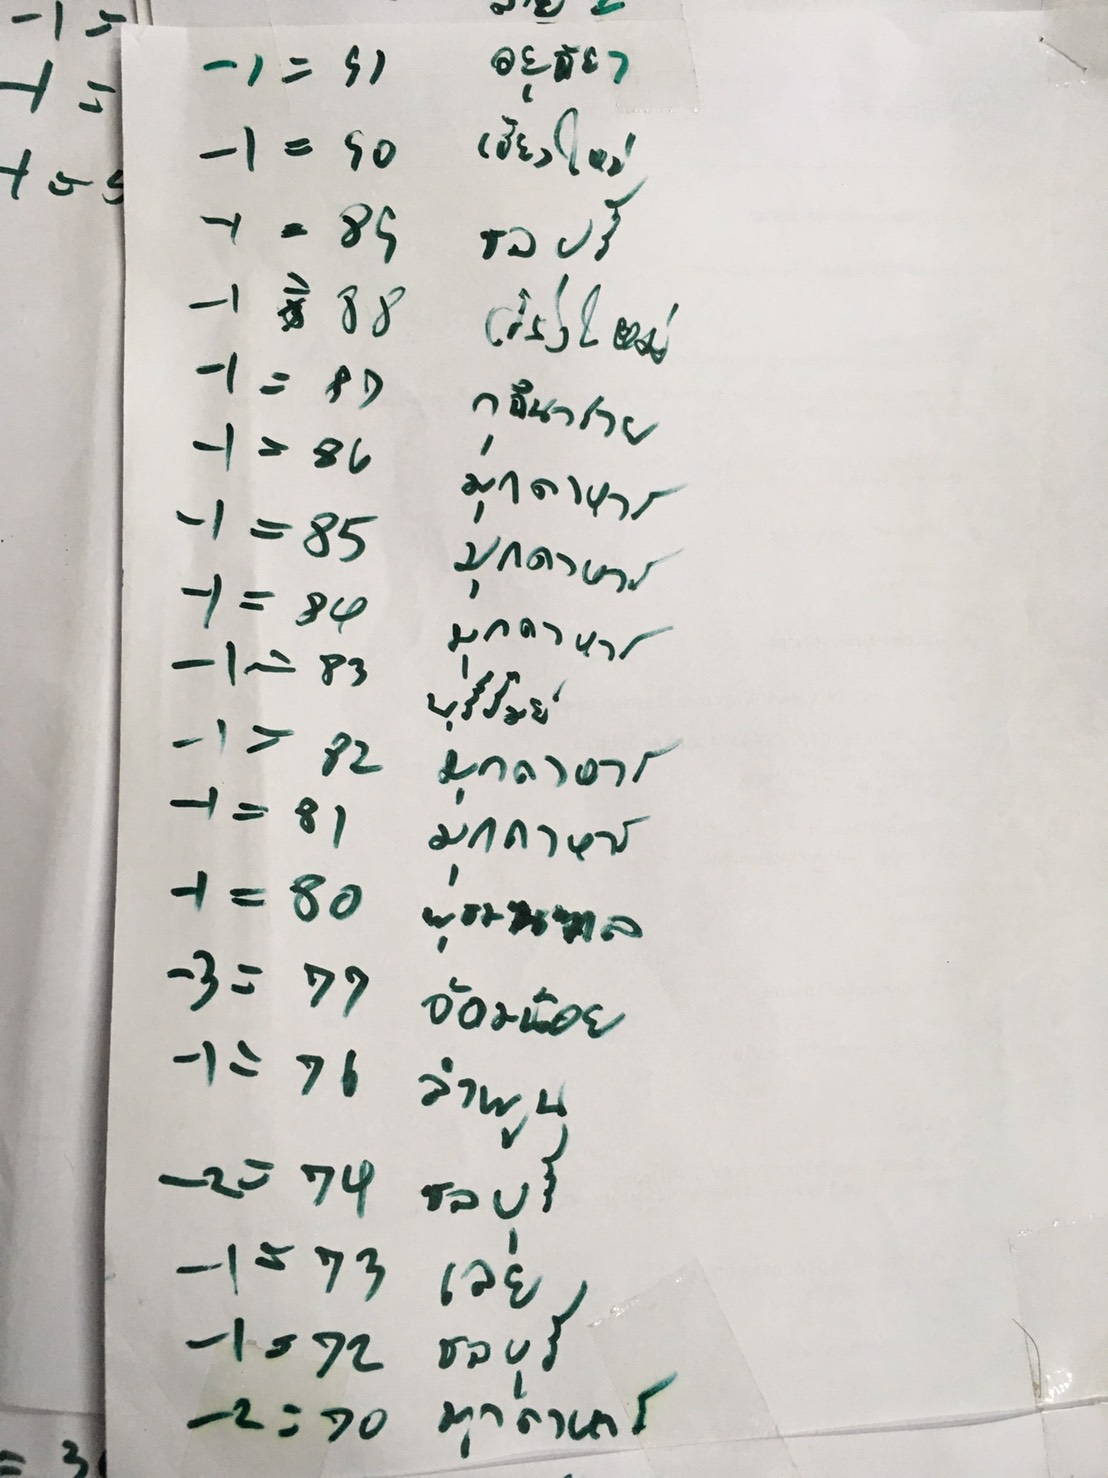 -1 =
-1 =
-1 = 9
สาย 2
-1 = 91 อยุธยา
-1 = 90 เชียงใหม่
-1 = 89 ชลบุรี
-1 = 88 เชียงใหม่
-1 = 87 กุสินาราย
-1 = 86 มุกดาหาร
-1 = 85 มุกดาหาร
-1 = 84 มุกดาหาร
-1 = 83 บุรีรัมย์
-1 = 82 มุกดาหาร
-1 = 81 มุกดาหาร
-1 = 80 พุธมณฑล
-3 = 77 อ้อมน้อย
-1 = 76 ลำพูน
-2 = 74 ชลบุรี
-1 = 73 เลย
-1 = 72 ชลบุรี
-2 = 70 มุกดาหาร
= 3